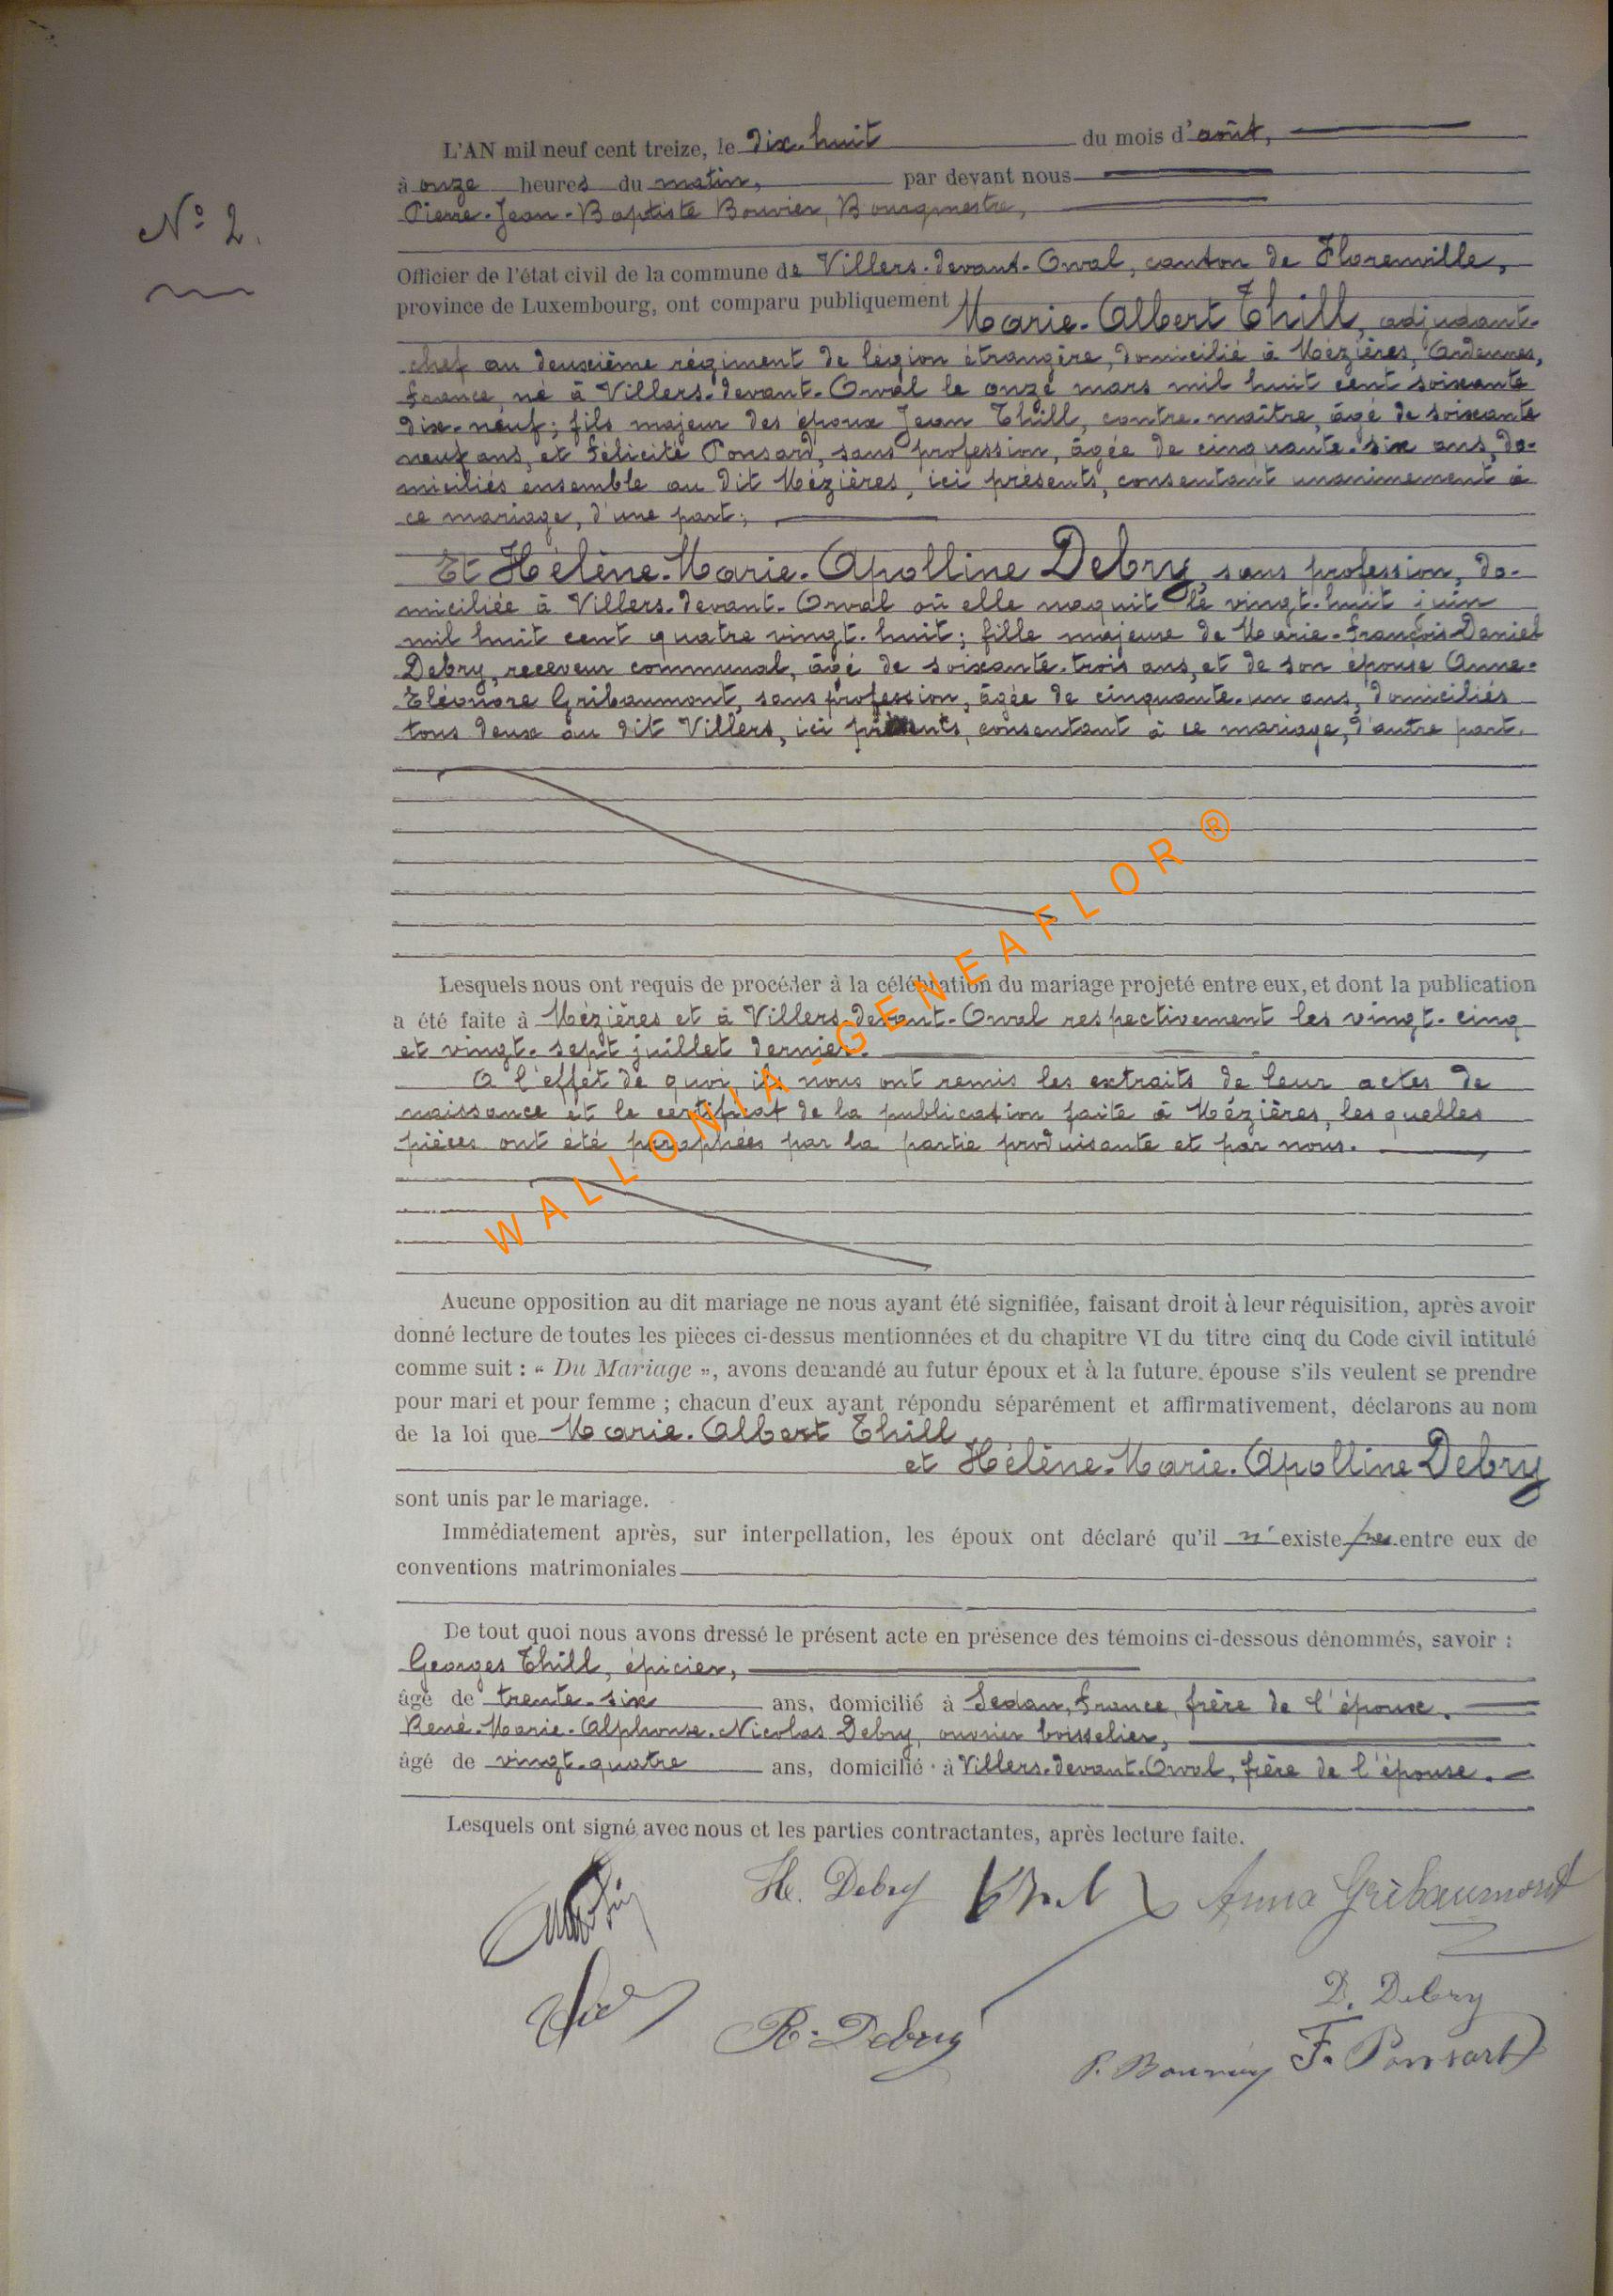 L'AN mil neuf cent treize, le dix-huit du mois d'août,
à onze heures du matin, par devant nous
Pierre-Jean-Baptiste Bouvier, Bourgmestre,
N° 2.
Officier de l'état civil de la commune de Villers-devant-Orval, canton de Florenville,
province de Luxembourg, ont comparu publiquement Marie-Albert Thill, adjudant-
chef au deuxième régiment de légion étrangère, domicilié à Mézières, Ardennes,
France, né à Villers-devant-Orval le onze mars mil huit cent soixante
dix-neuf; fils majeur des époux Jean Thill, contre-maître, âgé de soixante
neuf ans, et Félicité Ponsard, sans profession, âgée de cinquante-six ans, do-
miciliés ensemble au dit Mézières, ici présents, consentant unanimement à
ce mariage, d'une part;
Et Hélène-Marie-Apolline Debry, sans profession, do-
miciliée à Villers-devant-Orval où elle naquit le vingt-huit juin
mil huit cent quatre vingt-huit; fille majeure de Marie-François-Daniel
Debry, receveur communal, âgé de soixante-trois ans, et de son épouse Anne-
Eléonore Gribaumont, sans profession, âgée de cinquante-un ans, domiciliés
tous deux au dit Villers, ici présents, consentant à ce mariage, d'autre part.
Lesquels nous ont requis de procéder à la célébration du mariage projeté entre eux, et dont la publication
a été faite à Mézières et à Villers-devant-Orval respectivement les vingt-cinq
et vingt-sept juillet dernier.
A l'effet de quoi, ils nous ont remis les extraits de leur actes de
naissance et le certificat de la publication faite à Mézières, lesquelles
pièces ont été paraphées par la partie produisante et par nous.
WALLONIA-GENEAFLOR ®
Aucune opposition au dit mariage ne nous ayant été signifiée, faisant droit à leur réquisition, après avoir
donné lecture de toutes les pièces ci-dessus mentionnées et du chapitre VI du titre cinq du Code civil intitulé
comme suit : « Du Mariage », avons demandé au futur époux et à la future épouse s'ils veulent se prendre
pour mari et pour femme ; chacun d'eux ayant répondu séparément et affirmativement, déclarons au nom
de la loi que Marie-Albert Thill
et Hélène-Marie-Apolline Debry
sont unis par le mariage.
Immédiatement après, sur interpellation, les époux ont déclaré qu'il n'existe pas entre eux de
conventions matrimoniales
De tout quoi nous avons dressé le présent acte en présence des témoins ci-dessous dénommés, savoir :
Georges Thill, épicier,
âgé de trente-six ans, domicilié à Sedan, France, frère de l'époux.
René-Marie-Alphonse-Nicolas Debry, ouvrier boisselier,
âgé de vingt-quatre ans, domicilié à Villers-devant-Orval, frère de l'épouse.
Lesquels ont signé avec nous et les parties contractantes, après lecture faite.
H. Debry Anna Gribaumont
D. Debry
R. Debry
P. Bouvier F. Ponsart